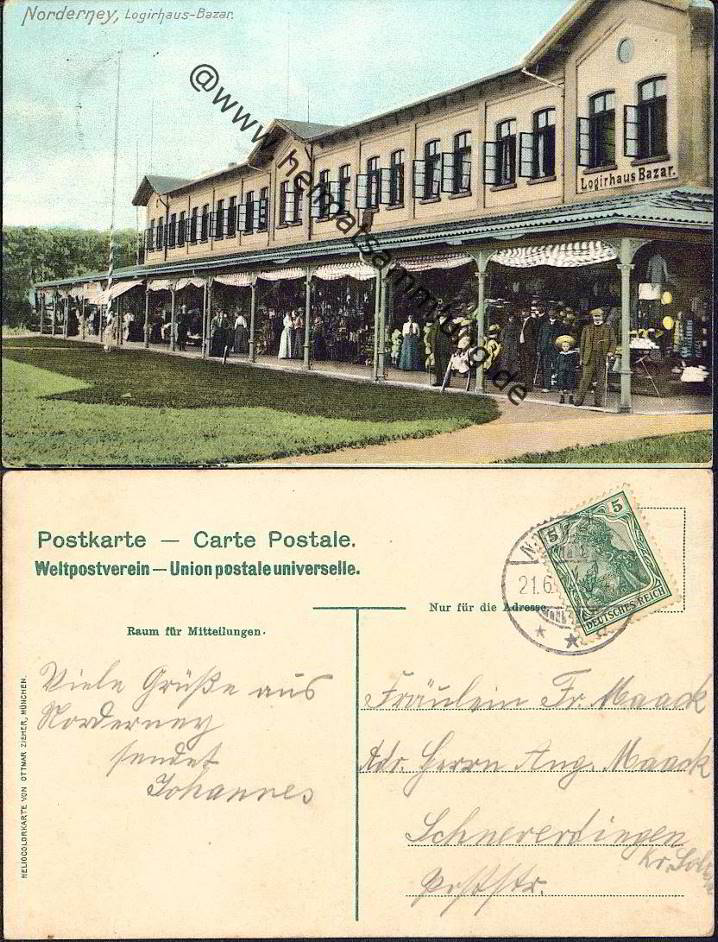 Norderney, Logirhaus-Bazar.
@www.heimatsammlung.de
Logirhaus Bazar.
Postkarte — Carte Postale.
Weltpostverein — Union postale universelle.
Nur für die Adresse.
Raum für Mitteilungen.
5 5
DEUTSCHES REICH
21.6
HELIOCOLORKARTE VON OTTMAR ZIEHER, MÜNCHEN.
Viele Grüße aus
Norderney
sendet
Johannes
Fräulein Fr. Maack
Adr. Herrn Aug. Maack
Schneverdingen
Kr.
Poststr.